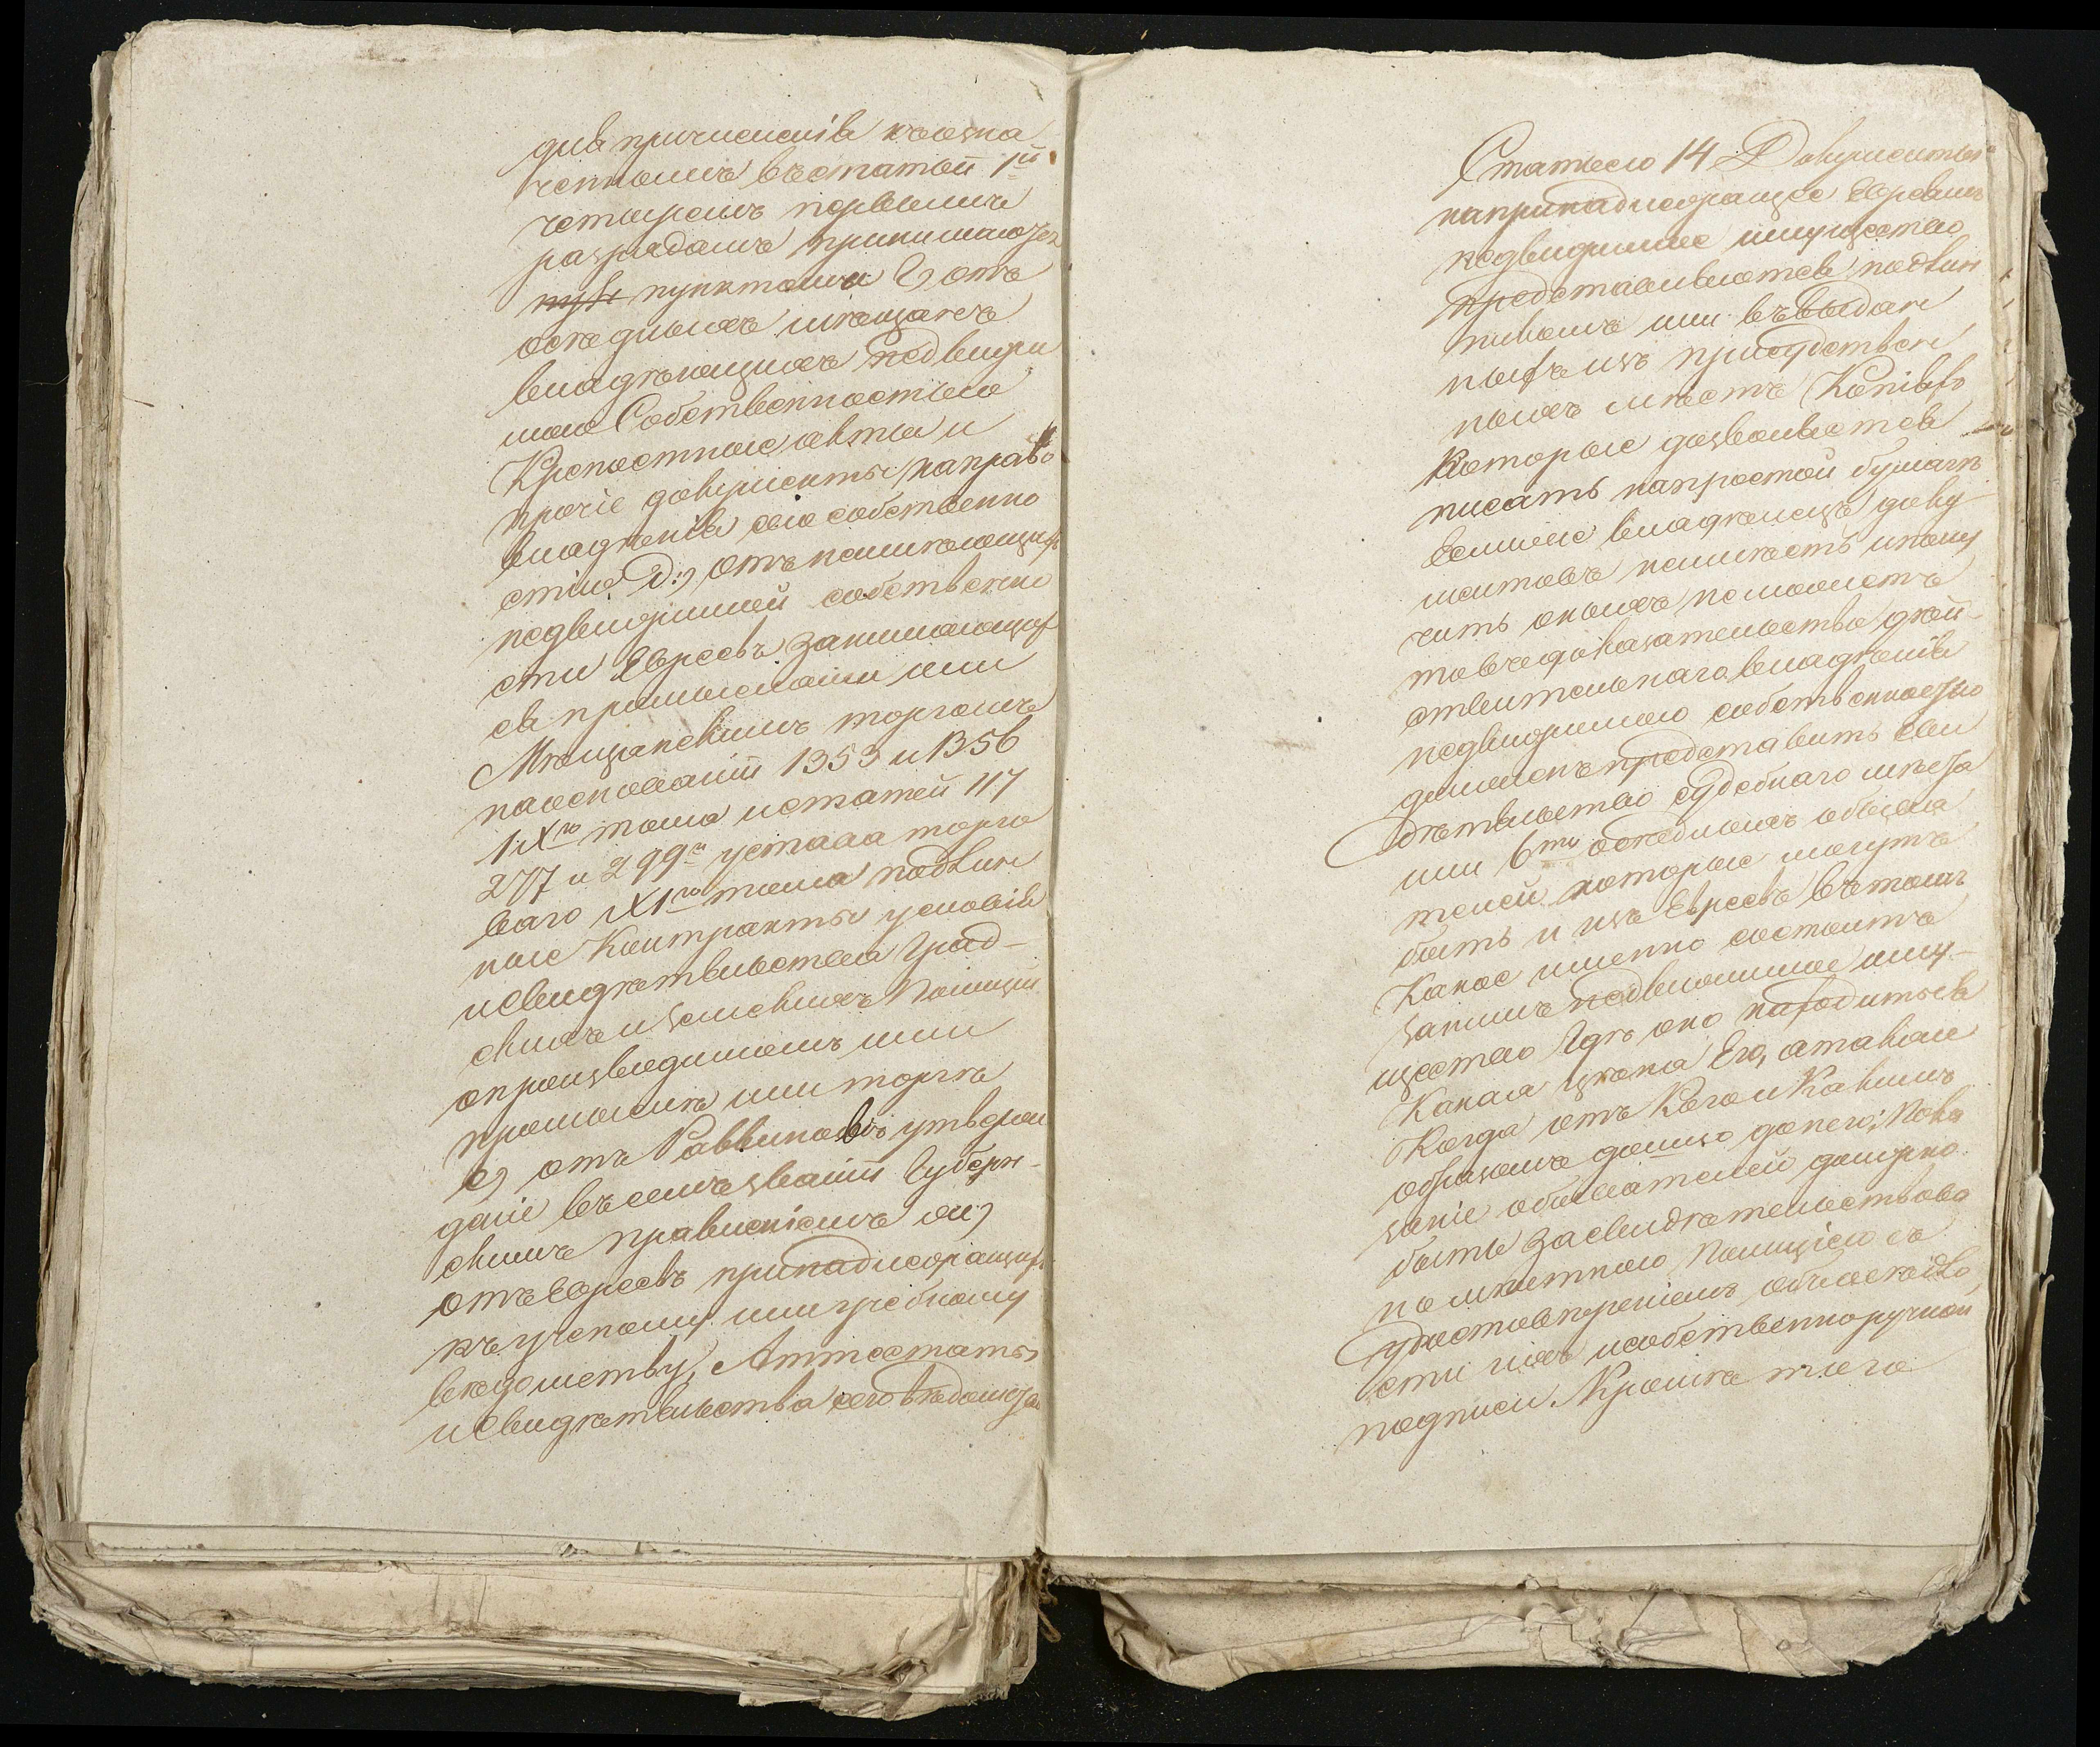 для причисленія къ озна
ченнымъ въ статьѣ 1й
четыремъ первымъ
разрядамъ принимаются
пунктами Г) отъ
осѣдлыхъ мѣщанъ
владѣющихъ недвижи
мою Собственностію
Крепостные акты и
прочіе документы на право
владѣнія сею собственно
стію Д:) отъ неимѣющихъ
недвижимой собственно
сти Евреевъ занимающих
ся промыслами или
Мѣщанскимъ торгомъ
на основаніи 1353 и 1356
IXго тома и статей 117
277 и 299й устава торго
ваго XIго тома подлин
ные Контракты условія
и свидѣтельства Град-
скихъ и земскихъ Полицій
о производимомъ ими
промыслѣ или торгѣ
е) отъ Раввиновъ утверж
деніе въ семъ званіи Губерн-
скимъ правленіемъ ж)
отъ Евреевъ принадлежащихъ
къ ученому или учебному
вѣдомству, Аттестаты
и свидѣтельства сего вѣдомства
Статьею 14 Документы
на принадлежащее Евреямъ
недвижимое имущество
представляются въ подлин
никахъ или въ выдан
ныхъ изъ присудствен
ныхъ мѣстъ Копіяхъ
Которые дозволяется
писать на простой бумагѣ
Если же владѣлецъ доку
ментовъ неимѣетъ и полу
чить оныхъ не можетъ
то въ доказательство дѣй-
ствительнаго владѣнія
недвижимою собственностію
долженъ представить Сви
дѣтельство судебнаго мѣста
или 6ти осѣдлыхъ обыва
телей которые могутъ
быть и изъ Евреевъ въ томъ
Какое именно состоитъ
за нимъ недвижимое иму-
щество Где оно находиться
Какая цѣна Его, а также
Когда отъ Кого и Какимъ
образомъ дошло до него; Пока
заніе обывателей должно
быть засвидѣтельствова
но мѣстною Полиціею съ
удостовѣреніемъ объ осѣдло
сти ихъ и собственноручной
подписи. Кромѣ того